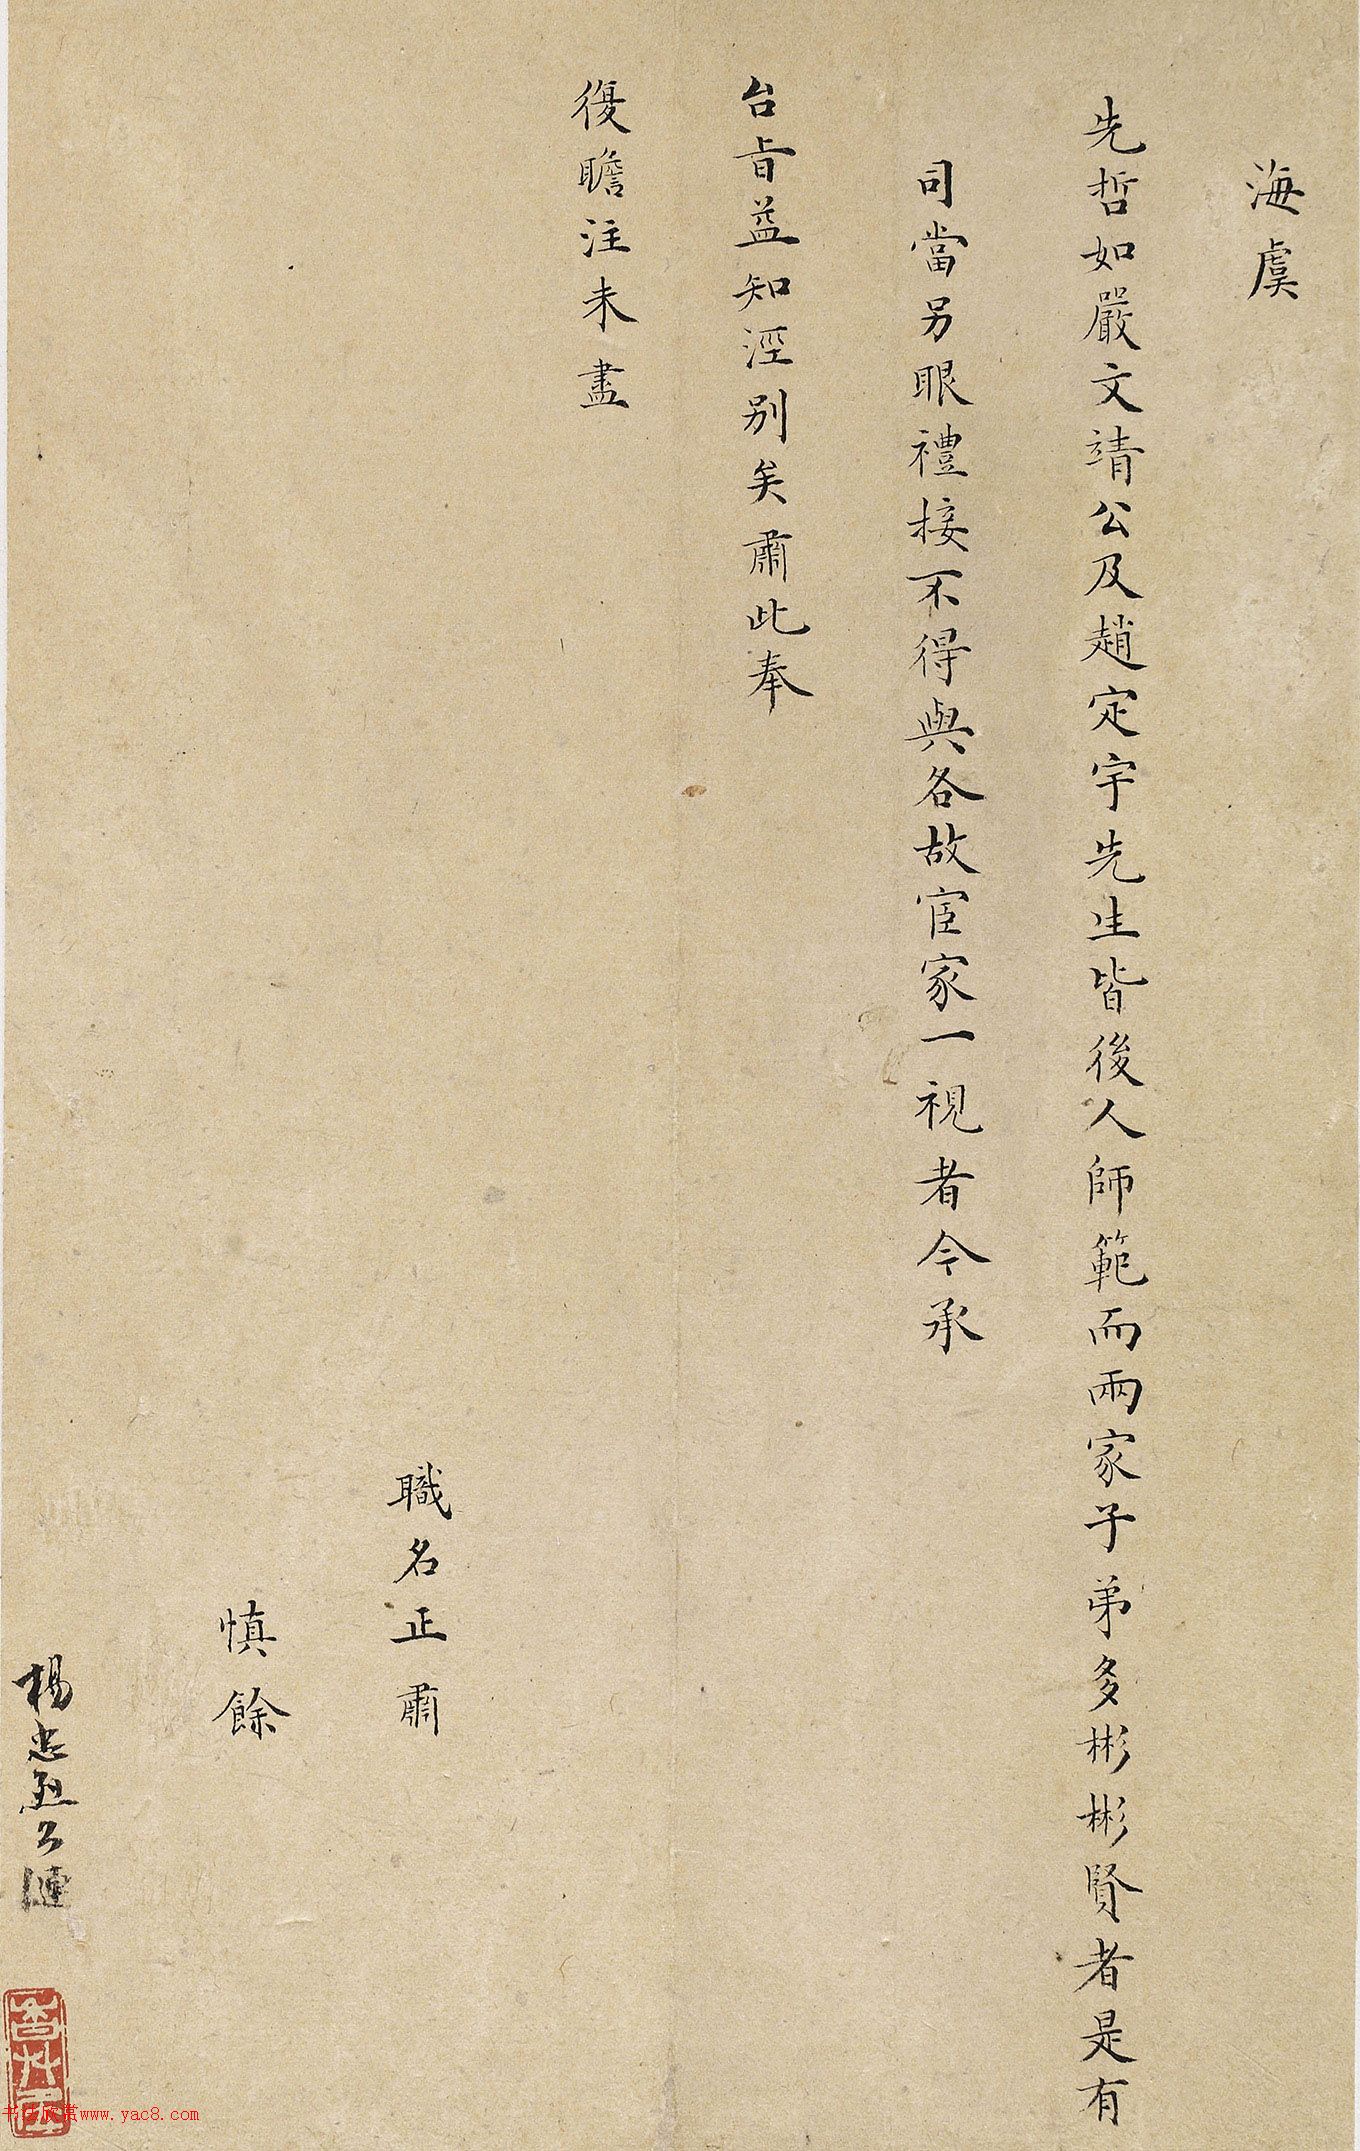 海虞
先哲如嚴文靖公及趙定宇先生皆後人師範而兩家子弟多彬彬賢者是有
司當另眼禮接不得與各故宦家一視者今承
台旨益知涇別矣肅此奉
復瞻注未盡
職名正肅
慎餘
楊忠烈公漣
书法欣赏www.yac8.com